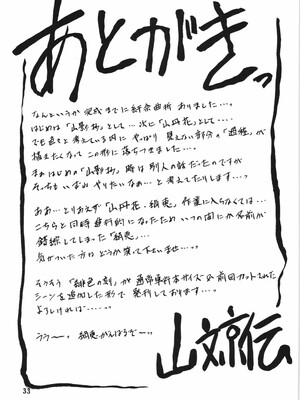 あとがきっ
なんというか完成までに紆余曲折ありました…。
はじめは「山彭拓」として… 次に「山丹花」として…
でも色々と考えている内に やっぱり 見えない部分の「過程」が
描きたくなってこの形に落ちつきました…。
まあはじめの「山彭拓」時は別人の話だったのですが
そっちもいずれやりたいなぁ…と考えてたりします…。
ああ…とりあえず「山丹花・絢恵」作業に入らなくては…
こちらと同時進行的になったためいつの間にか名前が
錯綜してしまった「絢恵」…
気がついた方はどうか笑って下さいませ…っ。
そうそう「緋色の刻」が通常単行本サイズの前回カットされた
シーンを追加した形で発行しております…。
よろしければ……。
ううー。絢恵がんばるぞーっ。
山文京伝
33